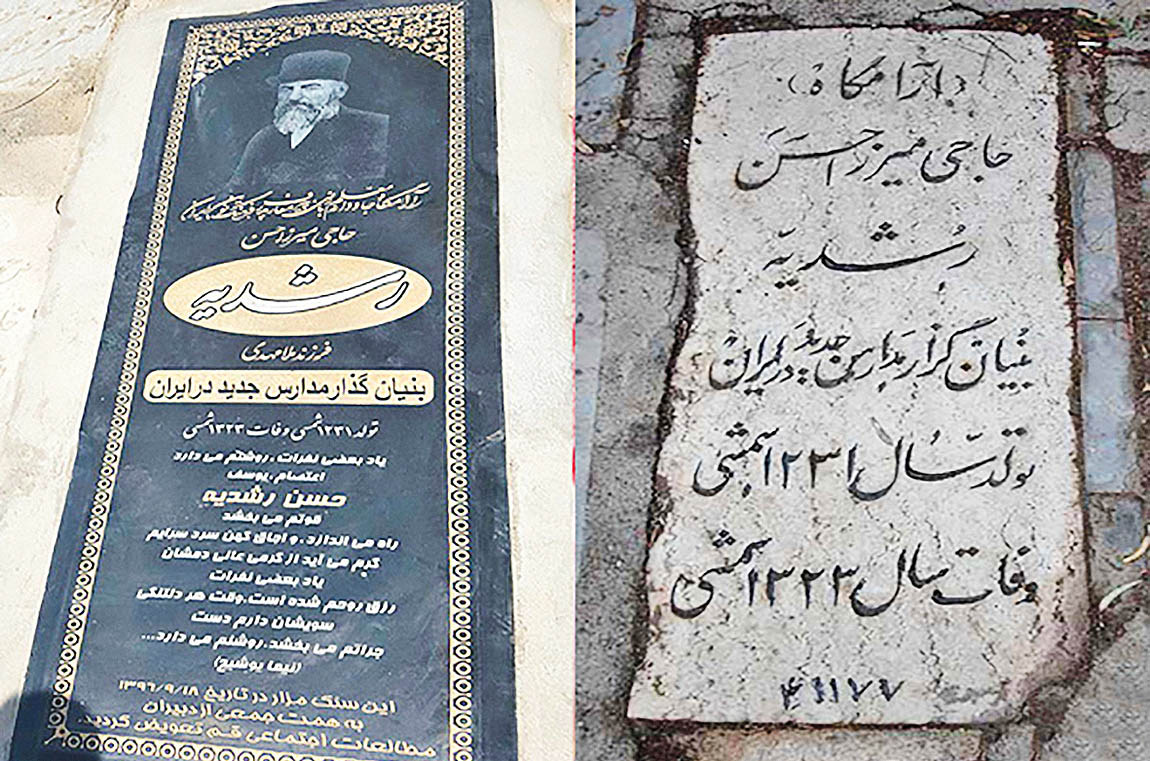 حاجی میرزا حسن
رشدیه
فرزند ملا مهدی
بنیان گذار مدارس جدید در ایران
تولد ۱۲۳۱ شمسی وفات ۱۳۲۳ شمسی
یاد بعضی نفرات، روشنم می دارد
اعتصام، یوسف
حسن رشدیه
قوتم می بخشد
راه می اندازد، و اجاق کهن سرد سرایم
گرم می آید از گرمی عالی دمشان
یاد بعضی نفرات
رزق روحم شده است، وقت هر دلتنگی
سویشان دارم دست
جراتم می بخشد، روشنم می دارد...
(نیما یوشیج)
این سنگ مزار در تاریخ ۱۳۹۶/۹/۱۸
به همت جمعی از دبیران
مطالعات اجتماعی قم تعویض گردید.
(آرامگاه)
حاجی میرزا حسن
رشدیه
بنیان گزار مدارس جدید در ایران
تولد سال ۱۲۳۱ شمسی
وفات سال ۱۳۲۳ شمسی